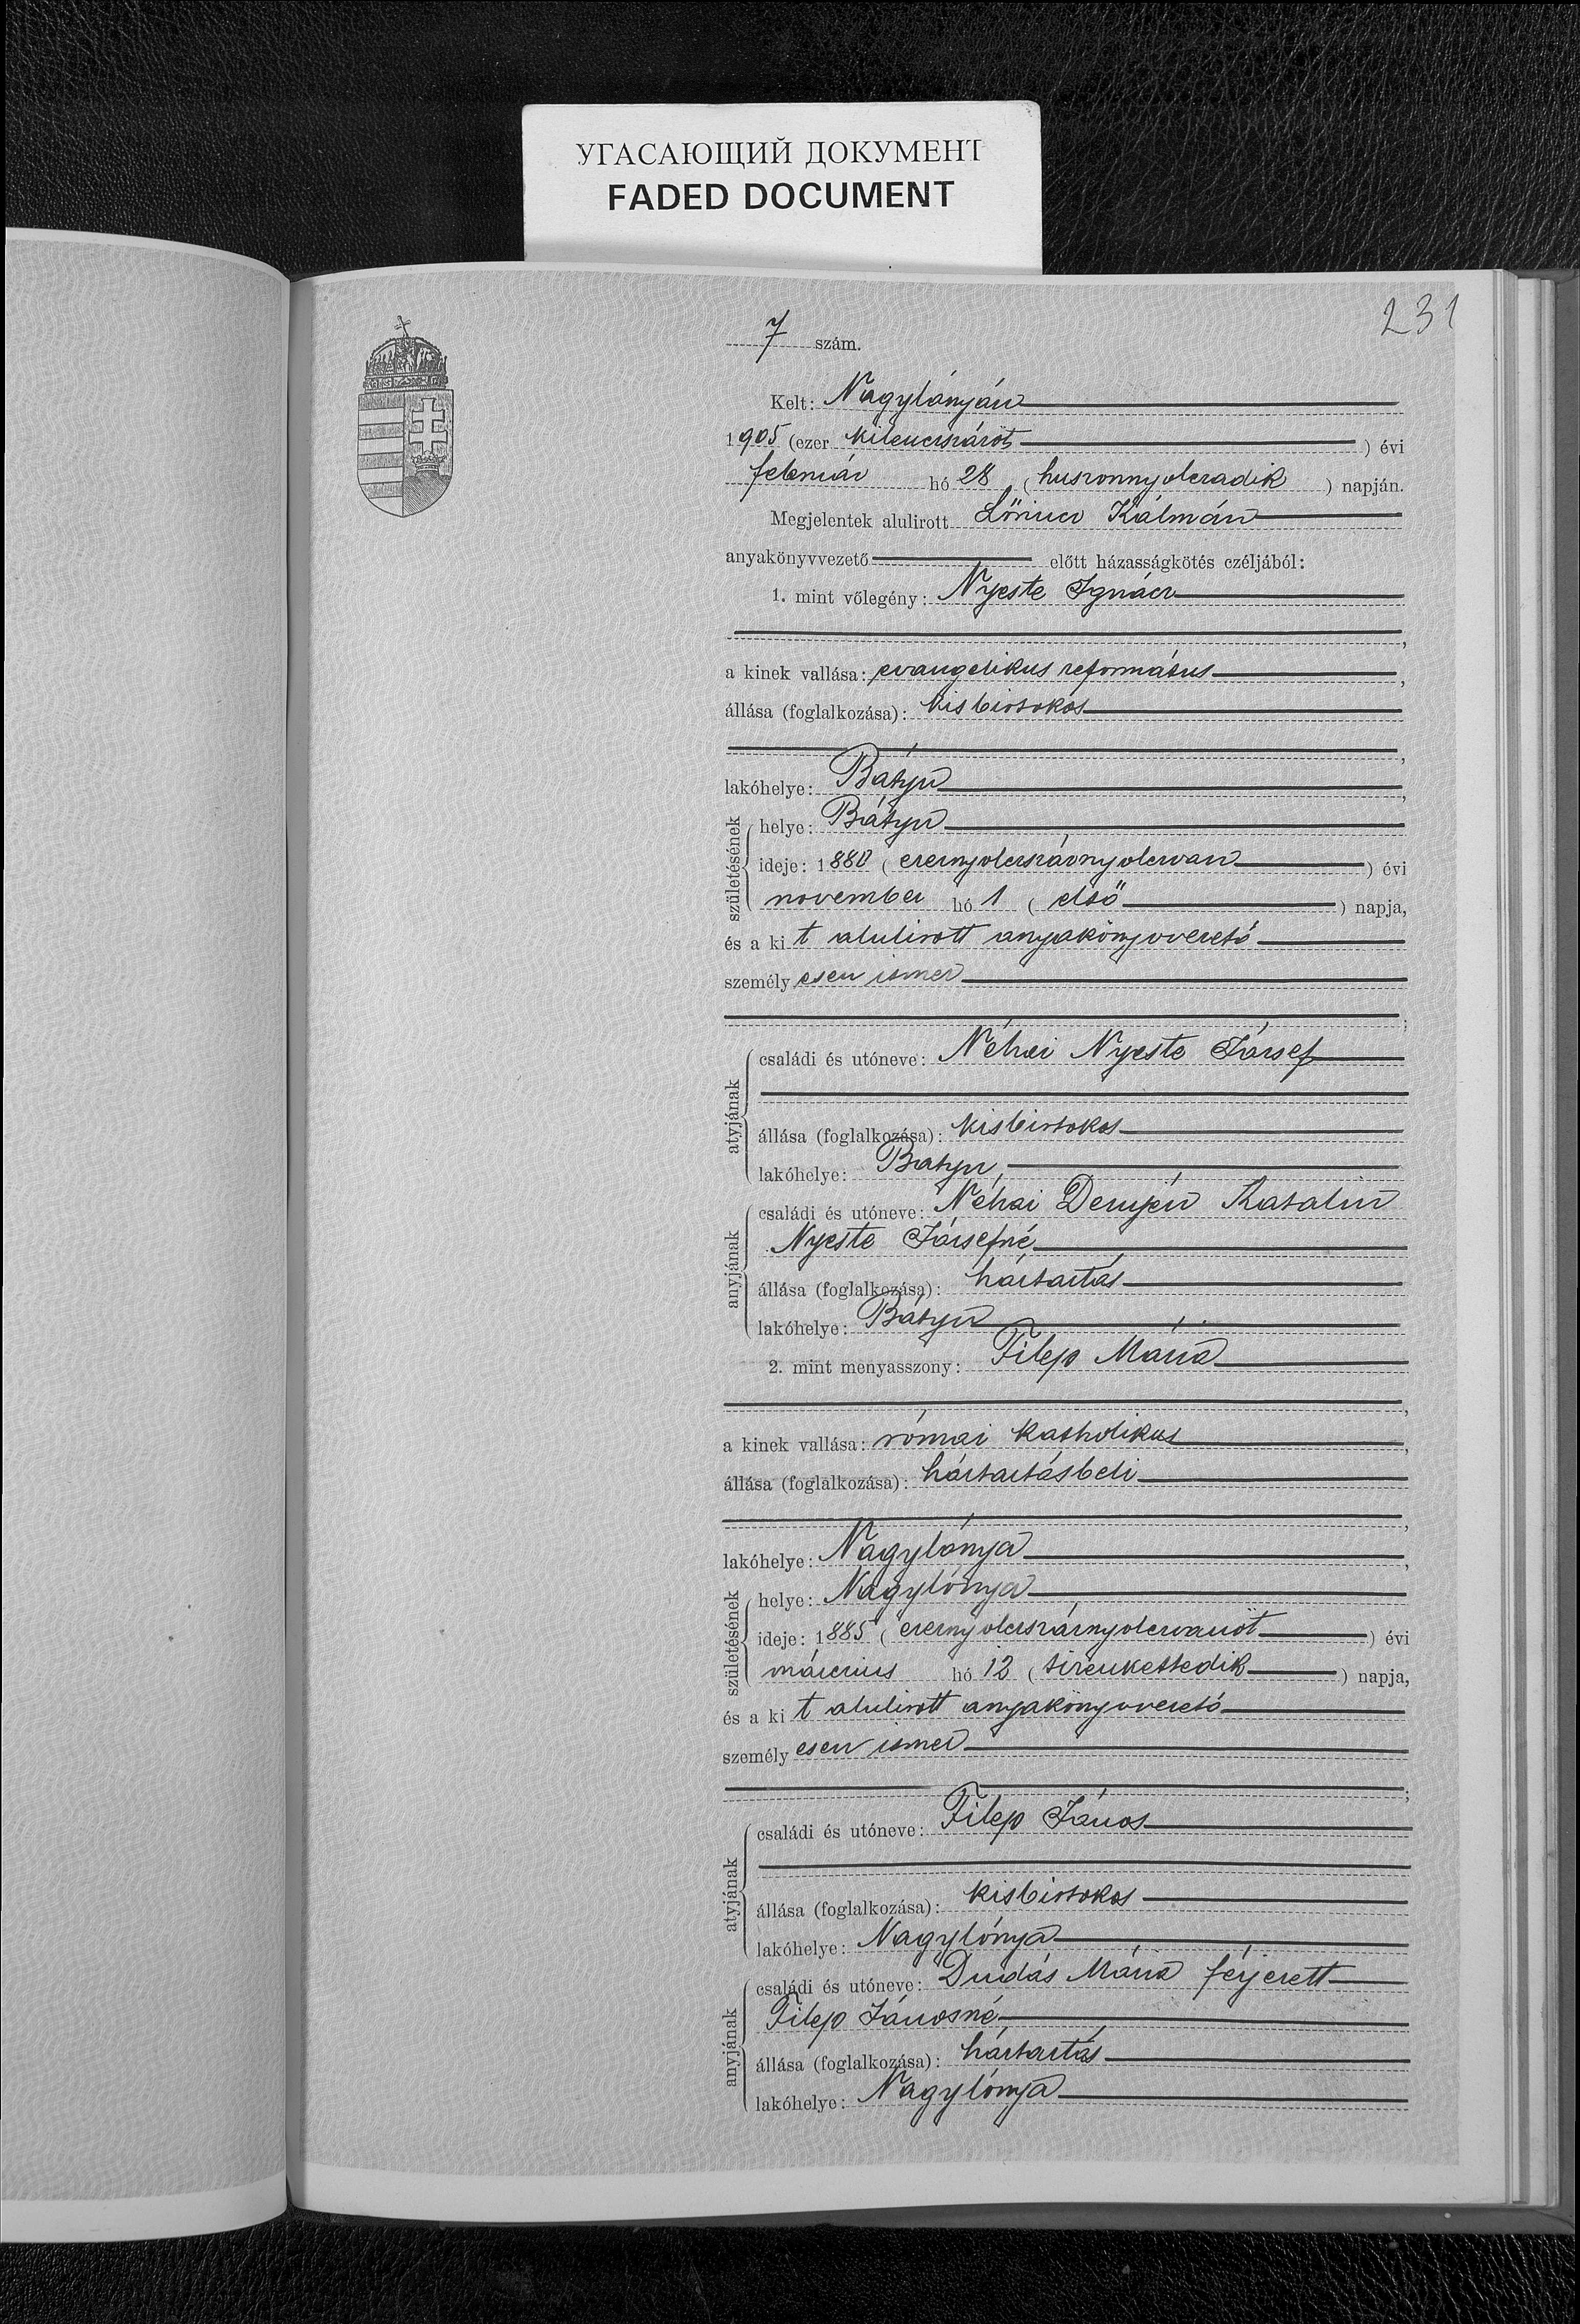 УГАСАЮЩИЙ ДОКУМЕНТ
FADED DOCUMENT
231
7 szám.
Kelt: Nagylónyán
1905 (ezer kilenczszázöt) évi
február hó 28 (huszonnyolczadik) napján.
Megjelentek alulirott Lőrincz Kálmán
anyakönyvvezető előtt házasságkötés czéljából:
1. mint vőlegény: Nyeste Ignácz
,
a kinek vallása: evangelikus református,
állása (foglalkozása): kisbirtokos
,
lakóhelye: Bátyu,
születésének
helye: Bátyu
ideje: 1880 (ezernyolczszáznyolczvan) évi
november hó 1 (első) napja,
és a kit alulirott anyakönyvvezető
személyesen ismer
;
atyjának
családi és utóneve: Néhai Nyeste József
állása (foglalkozása): kisbirtokos
lakóhelye: Bátyu,
anyjának
családi és utóneve: Néhai Demjén Katalin
Nyeste Józsefné
állása (foglalkozása): háztartás
lakóhelye: Bátyu
2. mint menyasszony: Filep Mária
,
a kinek vallása: római katholikus,
állása (foglalkozása): háztartásbeli
,
lakóhelye: Nagylónya,
születésének
helye: Nagylónya
ideje: 1885 (ezernyolczszáznyolczvanöt) évi
márczius hó 12 (tizenkettedik) napja,
és a kit alulirott anyakönyvvezető
személyesen ismer
;
atyjának
családi és utóneve: Filep János
állása (foglalkozása): kisbirtokos
lakóhelye: Nagylónya
anyjának
családi és utóneve: Dudás Mária férjezett
Filep Jánosné
állása (foglalkozása): háztartás
lakóhelye: Nagylónya